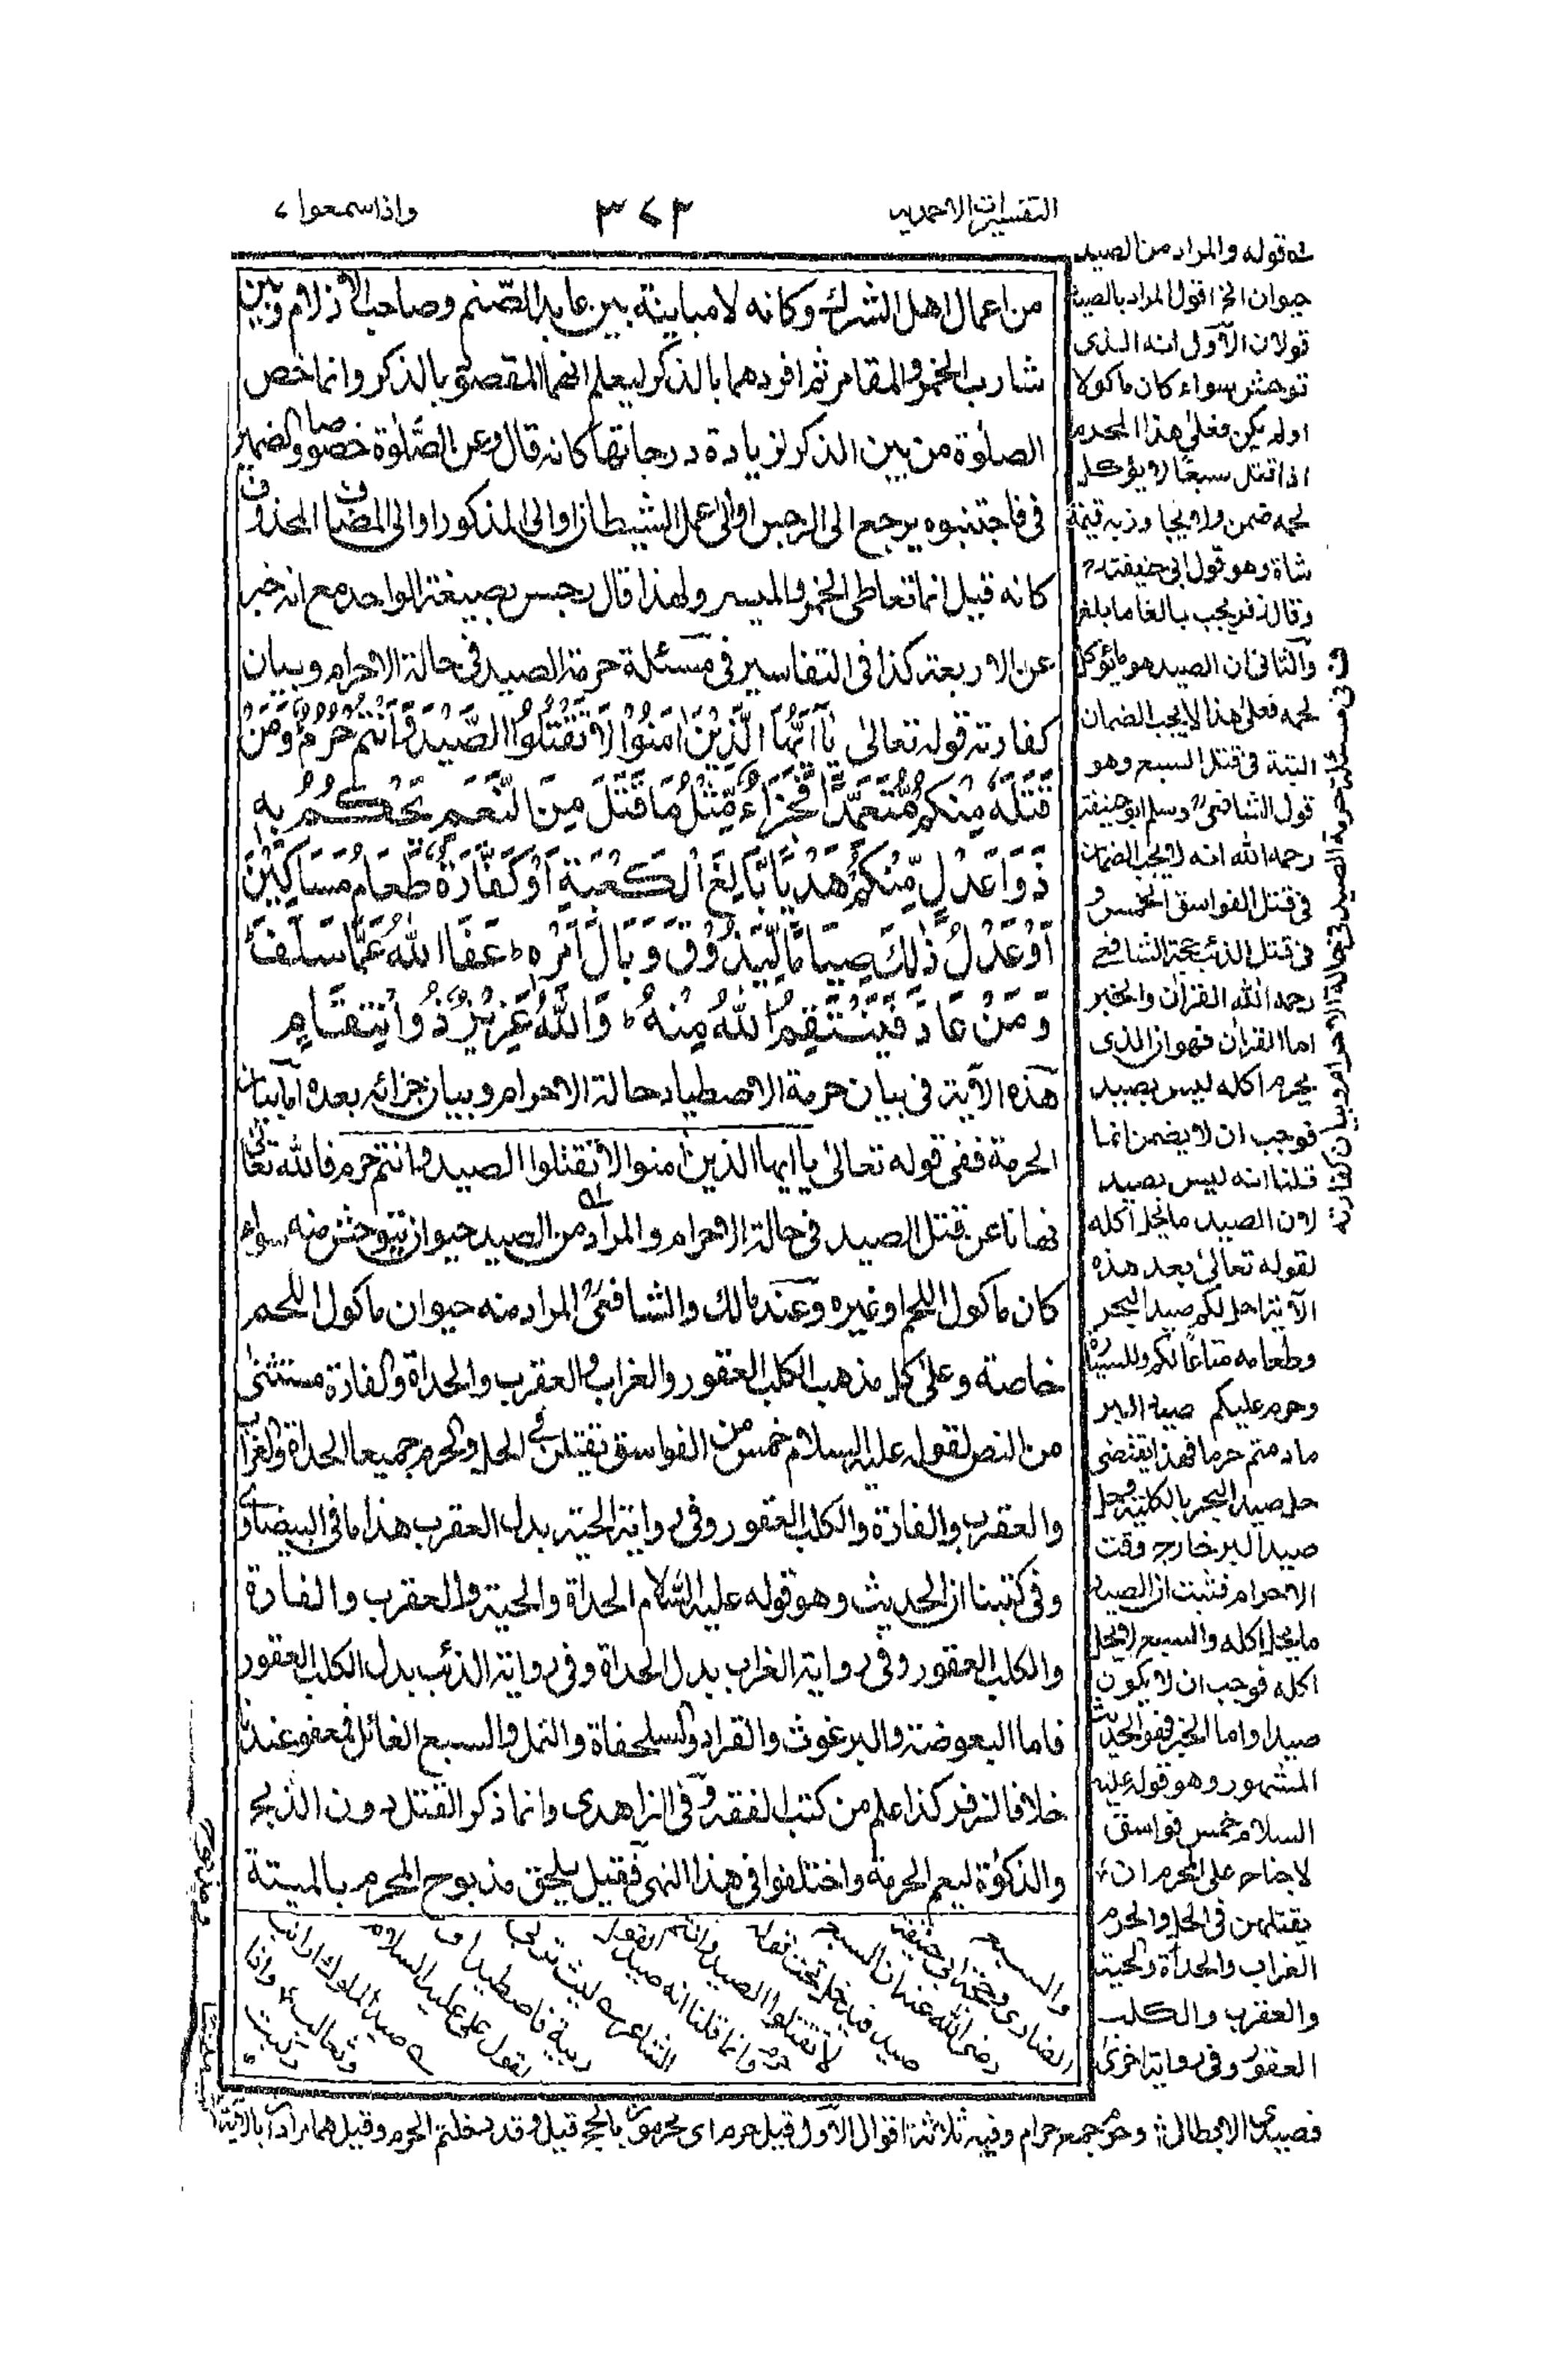 التفسيرات الاحمدية
٣٧٣
واذا سمعوا ٧
من اعمال اهل الشرك وكانه لا مباينة بين عابد الصنم وصاحب الازلام وبين
شارب الخمر والمقامر ثم افردهما بالذكر ليعلم انهما المقصود بالذكر وانما خص
الصلوٰة من بين الذكر لزيادة درجاتها كانه قال وعن الصَّلوٰة خصوصا والضمير
فى فاجتنبوه يرجع الى الرجس او الى عمل الشيطان او الى المذكور او الى المضاف المحذوف
كانه قيل انما تعاطى الخمر والميسر ولهذا قال رجس بصيغة الواحد مع انه خبر
عن الاربعة كذا فى التفاسير فى مسئلة حرمة الصيد فى حالة الاحرام وبيان
كفارته قوله تعالىٰ يٰۤاَيُّهَا الَّذِيْنَ اٰمَنُوْا لَا تَقْتُلُوا الصَّيْدَ وَاَنْتُمْ حُرُمٌ وَمَنْ
قَتَلَهٗ مِنْكُمْ مُّتَعَمِّدًا فَجَزَآءٌ مِّثْلُ مَا قَتَلَ مِنَ النَّعَمِ يَحْكُمُ بِهٖ
ذَوَا عَدْلٍ مِّنْكُمْ هَدْيًا بٰلِغَ الْكَعْبَةِ اَوْ كَفَّارَةٌ طَعَامُ مَسٰكِيْنَ
اَوْ عَدْلُ ذٰلِكَ صِيَامًا لِّيَذُوْقَ وَبَالَ اَمْرِهٖ ط عَفَا اللّٰهُ عَمَّا سَلَفَ ط
وَمَنْ عَادَ فَيَنْتَقِمُ اللّٰهُ مِنْهُ ط وَاللّٰهُ عَزِيْزٌ ذُوانْتِقَامٍ
هذه الآية فى بيان حرمة الاصطياد حالة الاحرام وبيان جزائه بعده اما بيان
الحرمة ففى قوله تعالىٰ ياايها الذين اٰمنوا لا تقتلوا الصيد وانتم حرم فالله تعالىٰ
نهانا عن قتل الصيد فى حالة الاحرام والمراد من الصيد حيوان يتوحش منه سواء
كان ماكول اللحم او غيره وعند مالك والشافعىؒ المراد منه حيوان ماكول اللحم
خاصة وعلىٰ كل مذهب الكلب العقور والغراب والعقرب والحداة والفارة مستثنىٰ
من النص لقوله عليه السلام خمس من الفواسق يقتلن فى الحل والحرم جميعا الحداة والغراب
والعقرب والفارة والكلب العقور وفى رواية الحية بدل العقرب هذا ما فى البيضاوى
وفى كتبنا ان الحديث وهو قوله عليه السّلام الحداة والحية والعقرب والفارة
والكلب العقور وفى رواية الغراب بدل الحداة وفى رواية الذئب بدل الكلب العقور
فاما البعوضة والبرغوث والقراد والسلحفاة والنمل والسبع الصائل فمعفو عندنا
خلافا لزفر كذا علم من كتب الفقه وفى الزاهدى وانما ذكر القتل دون الذبح
والذكوٰة ليعم الحرمة واختلفوا فى هذا النهى فقيل يلحق مذبوح المحرم بالميتة
له قوله والمراد من الصيد
حيوان الخ اقول المراد بالصيد
قولان الاول انه الذى
توحش سواء كان ماكولا
اولم يكن فعلىٰ هذا المحرم
اذا قتل سبعًا لا يؤكل
لحمه ضمن ولا يجاوز به قيمة
شاة وهو قول ابى حنيفةؒ
وقال زفر يجب بالغا ما بلغ
والثانى ان الصيد هو ما يؤكل
لحمه فعلىٰ هذا لا يجب الضمان
البتة فى قتل السبع وهو
قول الشافعىؒ وسلم ابو حنيفة
رحمه الله انه لا يجب الضمان
فى قتل الفواسق الخمس و
فى قتل الذئب حجة الشافعى
رحمه الله القراٰن والخبر
اما القراٰن فهو ان الذى
يحرم اكله ليس بصيد
فوجب ان لا يضمن انما
قلنا انه ليس بصيد
لان الصيد ما يحل اكله
لقوله تعالىٰ بعد هذه
الآية احل لكم صيد البحر
وطعامه متاعًا لكم وللسيارة
وحرم عليكم صيد البر
ما دمتم حرما فهذا يقتضى
حل صيد البحر بالكلية وحل
صيد البر خارج وقت
الاحرام فثبت ان الصيد
ما يحل اكله والسبع لا يحل
اكله فوجب ان لا يكون
صيدا واما الخبر فهو الحديث
المشهور وهو قوله عليه
السلام خمس فواسق
لا جناح على المحرم ان
يقتلهن فى الحل والحرم
الغراب والحداة والحية
والعقرب والكلب
العقور وفى رواية اخرىٰ
والسبع
الضارى وحجة ابى حنيفة
رضى الله عنه ان السبع
صيد فيدخل تحت قوله
لا تقتلوا الصيد وانتم
حرم وانما قلنا انه صيد لقول
الشاعر ليث تربى
ربية فاصطيدا و
لقول على عليه السلام
صيد الملوك ارانب
وثعالب واذا
ركبت
فصيدى الابطال وحرم جمع حرام وفيه ثلاثة اقوال الاول قيل حرم اى محرمون بالحج قيل وقد دخلتم الحرم وقيل هما مرادا بالآية
فى مسئلة حرمة الصيد فى حالة الاحرام وبيان كفارته